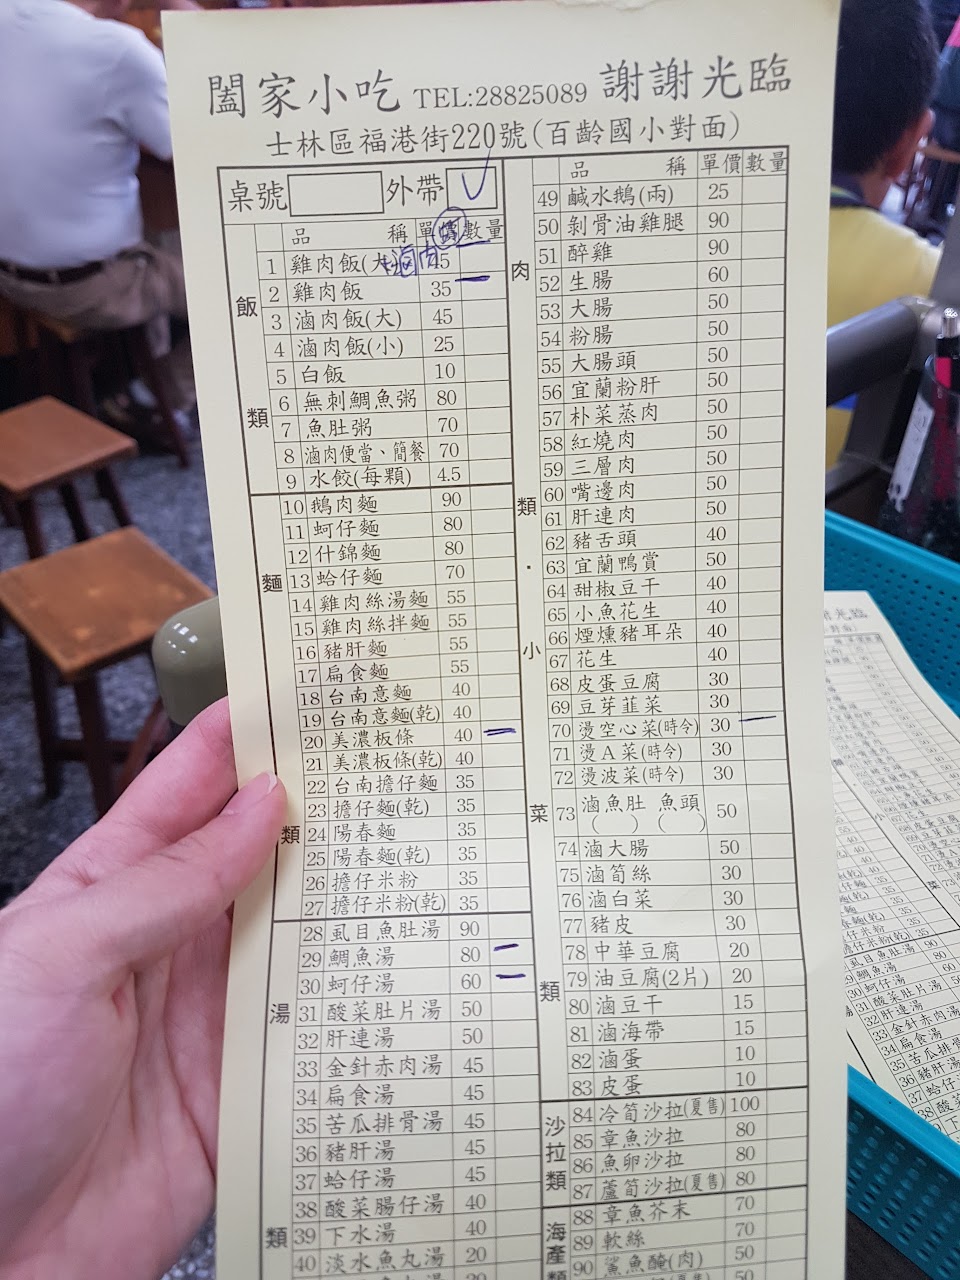 闔家小吃 TEL:28825089 謝謝光臨
士林區福港街220號(百齡國小對面)
桌號 外帶 ✓
品 稱 單價 數量
飯類
1 雞肉飯(大) 45
滷肉
2 雞肉飯 35
3 滷肉飯(大) 45
4 滷肉飯(小) 25
5 白飯 10
6 無刺鯛魚粥 80
7 魚肚粥 70
8 滷肉便當、簡餐 70
9 水餃(每顆) 4.5
麵類
10 鵝肉麵 90
11 蚵仔麵 80
12 什錦麵 80
13 蛤仔麵 70
14 雞肉絲湯麵 55
15 雞肉絲拌麵 55
16 豬肝麵 55
17 扁食麵 55
18 台南意麵 40
19 台南意麵(乾) 40
20 美濃板條 40 一
21 美濃板條(乾) 40
22 台南擔仔麵 35
23 擔仔麵(乾) 35
24 陽春麵 35
25 陽春麵(乾) 35
26 擔仔米粉 35
27 擔仔米粉(乾) 35
湯類
28 虱目魚肚湯 90
29 鯛魚湯 80 一
30 蚵仔湯 60 一
31 酸菜肚片湯 50
32 肝連湯 50
33 金針赤肉湯 45
34 扁食湯 45
35 苦瓜排骨湯 45
36 豬肝湯 45
37 蛤仔湯 45
38 酸菜腸仔湯 40
39 下水湯 40
40 淡水魚丸湯 20
品 稱 單價 數量
肉類·小菜類
49 鹹水鵝(兩) 25
50 剝骨油雞腿 90
51 醉雞 90
52 生腸 60
53 大腸 50
54 粉腸 50
55 大腸頭 50
56 宜蘭粉肝 50
57 朴菜蒸肉 50
58 紅燒肉 50
59 三層肉 50
60 嘴邊肉 50
61 肝連肉 50
62 豬舌頭 40
63 宜蘭鴨賞 50
64 甜椒豆干 40
65 小魚花生 40
66 煙燻豬耳朵 40
67 花生 40
68 皮蛋豆腐 30
69 豆芽韮菜 30
70 燙空心菜(時令) 30 一
71 燙A菜(時令) 30
72 燙波菜(時令) 30
73 滷魚肚 魚頭 50
( ) ( )
74 滷大腸 50
75 滷筍絲 30
76 滷白菜 30
77 豬皮 30
78 中華豆腐 20
79 油豆腐(2片) 20
80 滷豆干 15
81 滷海帶 15
82 滷蛋 10
83 皮蛋 10
沙拉類
84 冷筍沙拉(夏售) 100
85 章魚沙拉 80
86 魚卵沙拉 80
87 蘆筍沙拉(夏售) 80
海產類
88 章魚芥末 70
89 軟絲 70
90 鯊魚醃(肉) 50